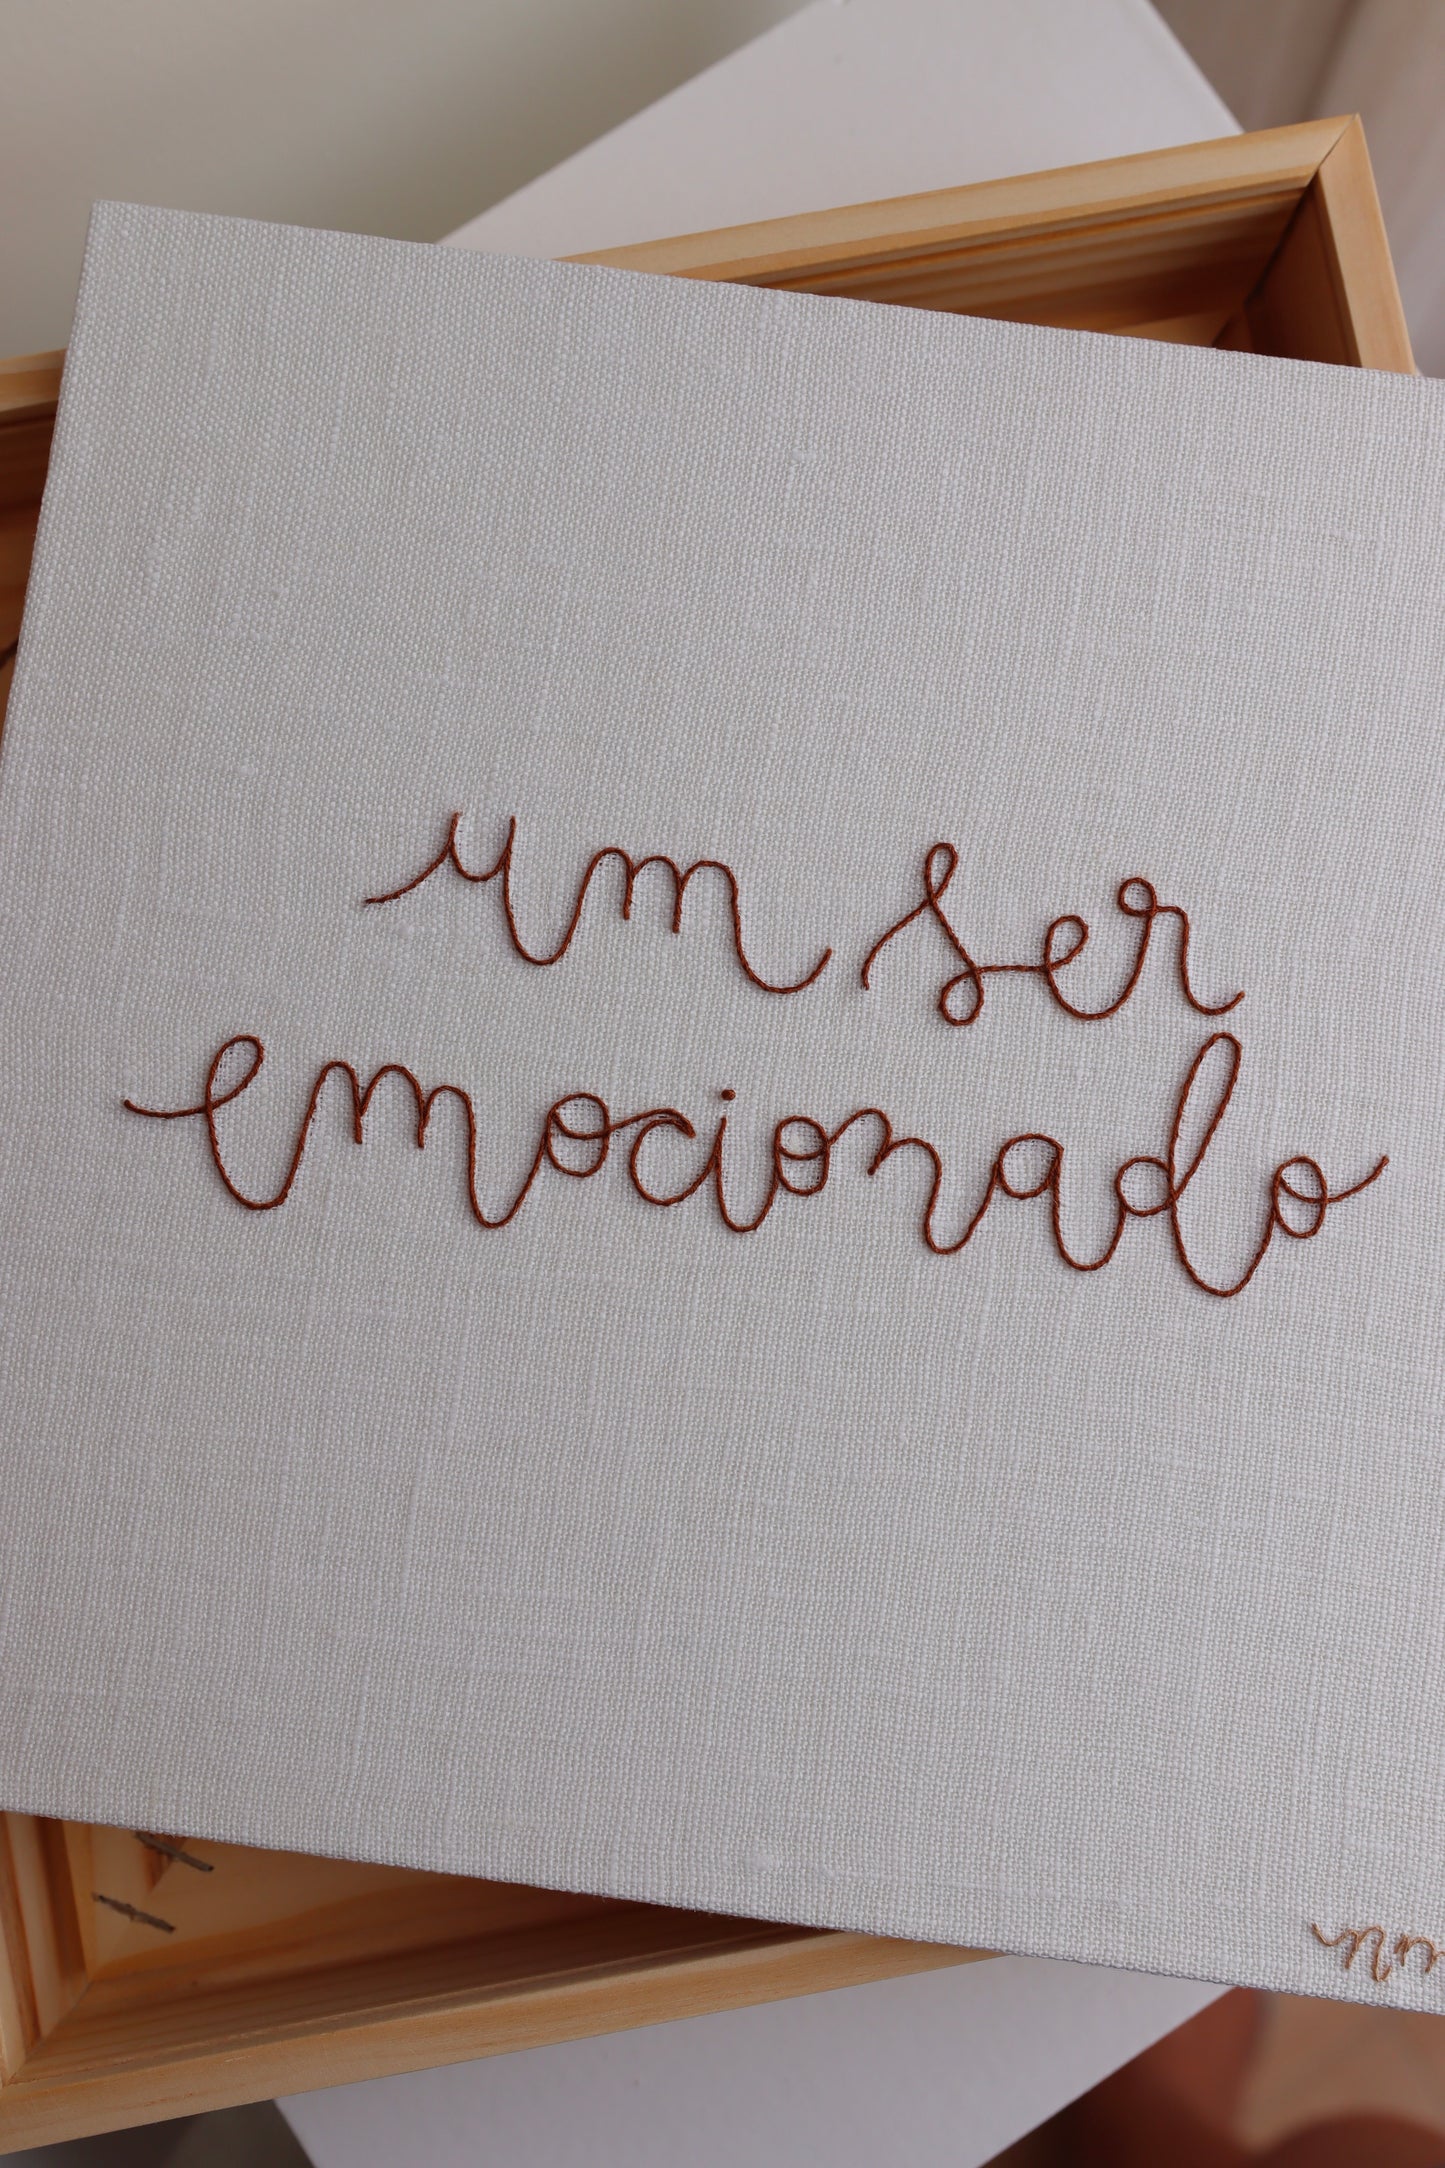 um ser
emocionado